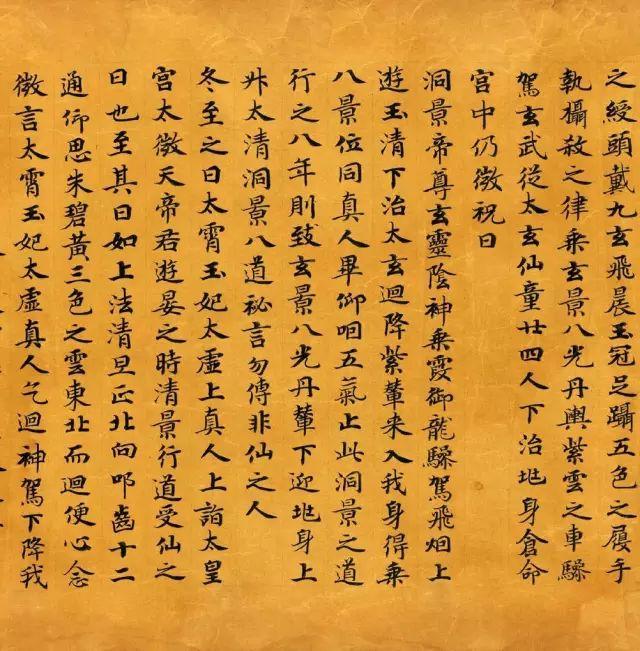 之綬頭戴九玄飛晨玉冠足躡五色之履手
執攝殺之律乘玄景八光丹輿紫雲之車驂
駕玄武從太玄仙童廿四人下治兆身倉命
宮中仍微祝曰
洞景帝尊玄靈陰神乘霞御龍驂駕飛烟上
遊玉清下治太玄迴降紫輦来入我身得乗
八景位同真人畢仰咽五氣止此洞景之道
行之八年則致玄景八光丹輦下迎兆身上
升太清洞景八道祕言勿傳非仙之人
冬至之日太霄玉妃太虛上真人上詣太皇
宮太微天帝君遊晏之時清景行道受仙之
日也至其日如上法清旦正北向叩齒十二
通仰思朱碧黃三色之雲東北而迴便心念
微言太霄玉妃太虛真人乞迴神駕下降我